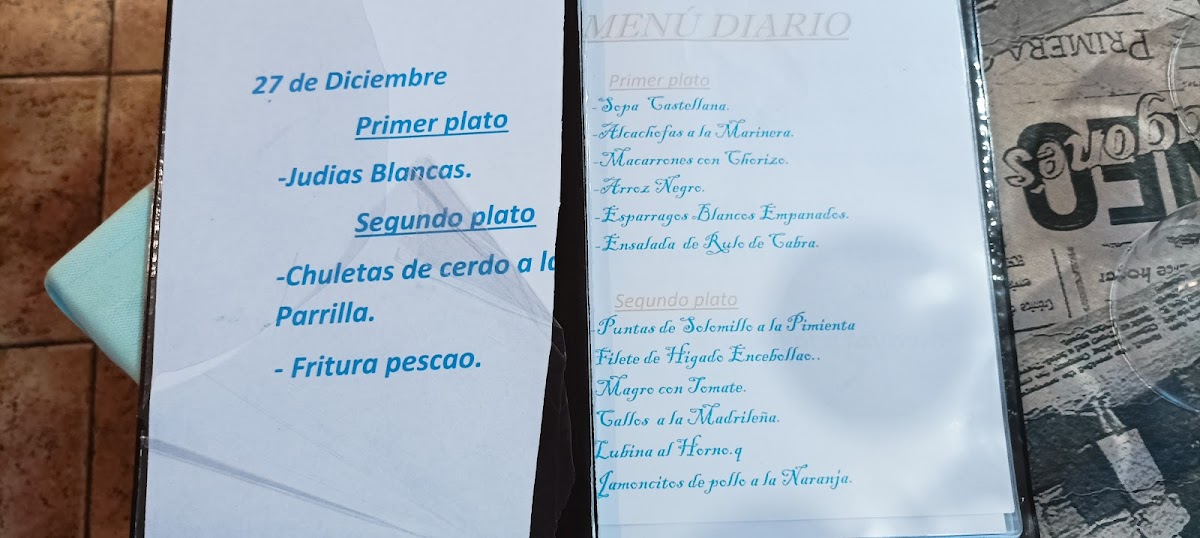 27 de Diciembre
Primer plato
-Judias Blancas.
Segundo plato
-Chuletas de cerdo a la
Parrilla.
- Fritura pescao.
MENÚ DIARIO
Primer plato
-Sopa Castellana.
-Alcachofas a la Marinera.
-Macarrones con Chorizo.
-Arroz Negro.
-Esparragos Blancos Empanados.
-Ensalada de Rulo de Cabra.
Segundo plato
-Puntas de Solomillo a la Pimienta
Filete de Higado Encebollao..
Magro con Tomate.
Callos a la Madrileña.
Lubina al Horno.q
Jamoncitos de pollo a la Naranja.
PRIMERA